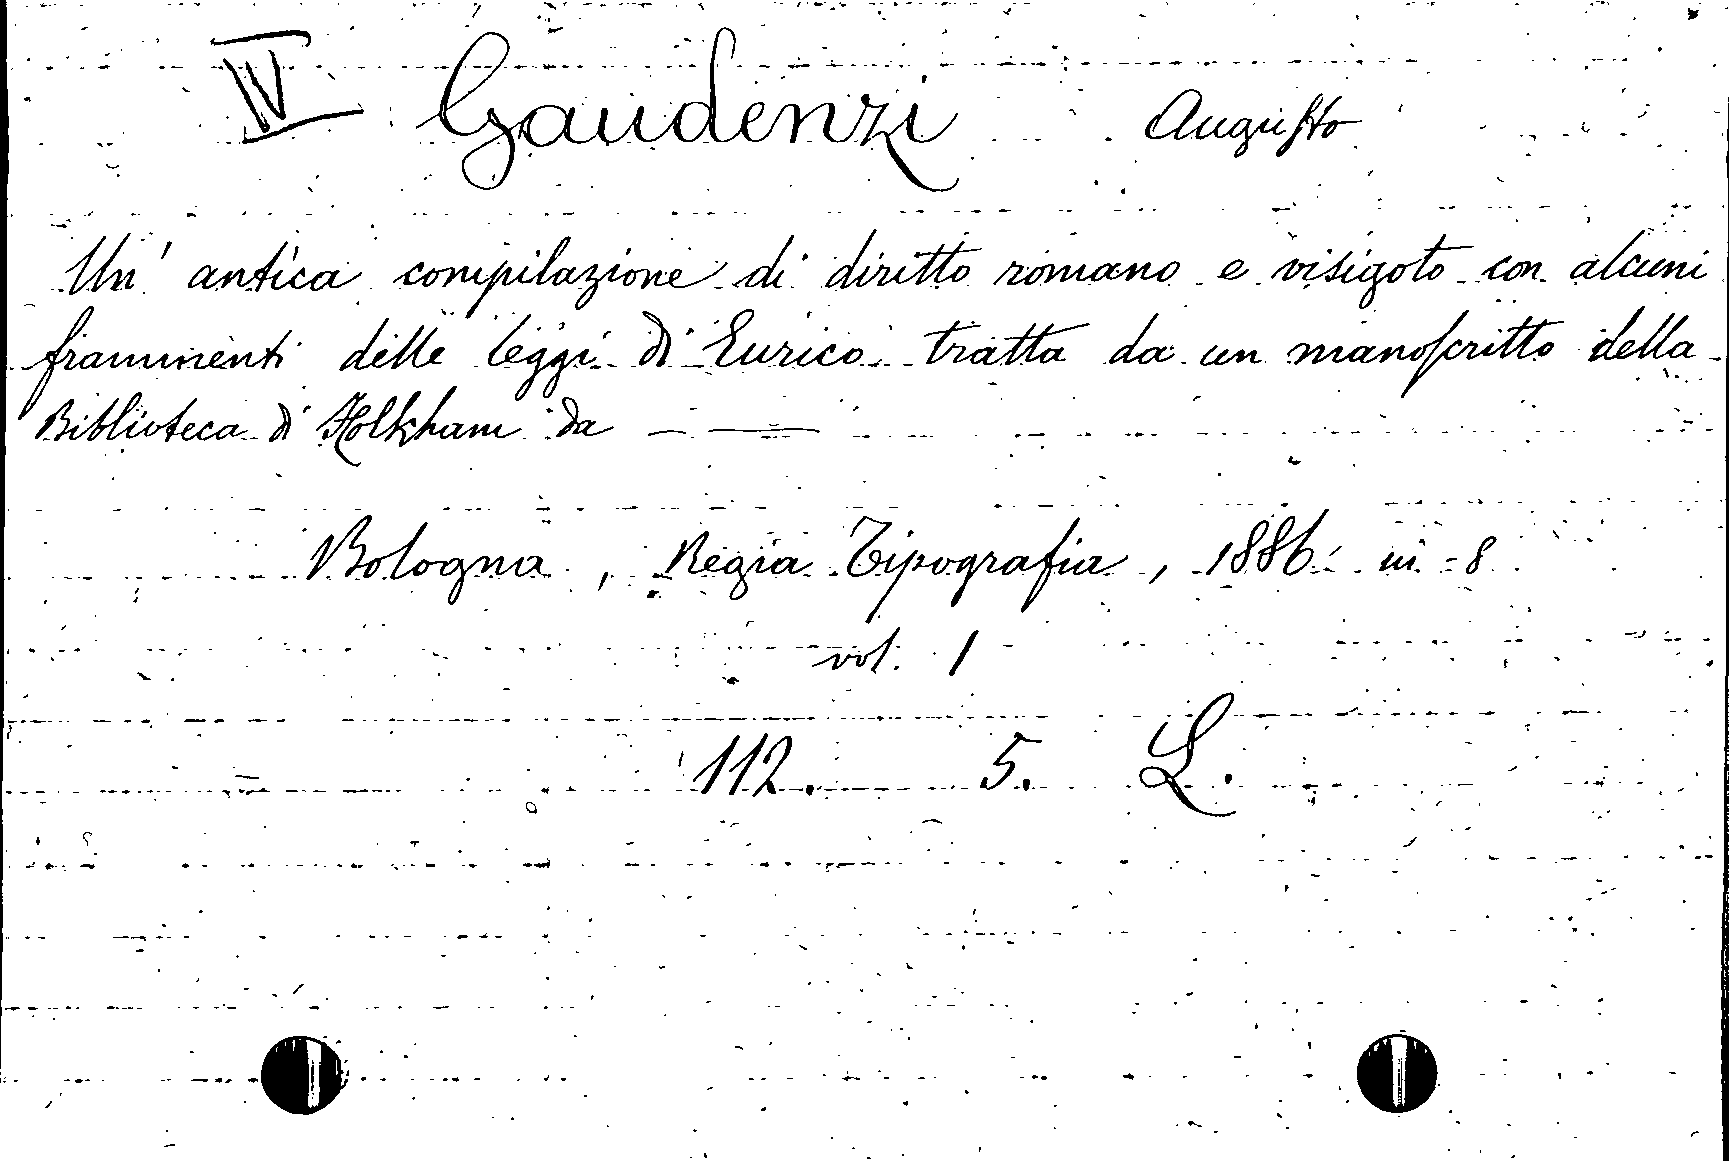 IV Gaudenzi Augusto
Un' antica compilazione di diritto romano e visigoto con alcuni
frammenti delle leggi di Eurico tratta da un manoscritto della
Biblioteca di Holkham da — ——
Bologna, Regia Tipografia, 1886 in-8
vol. 1
112. 5. L.